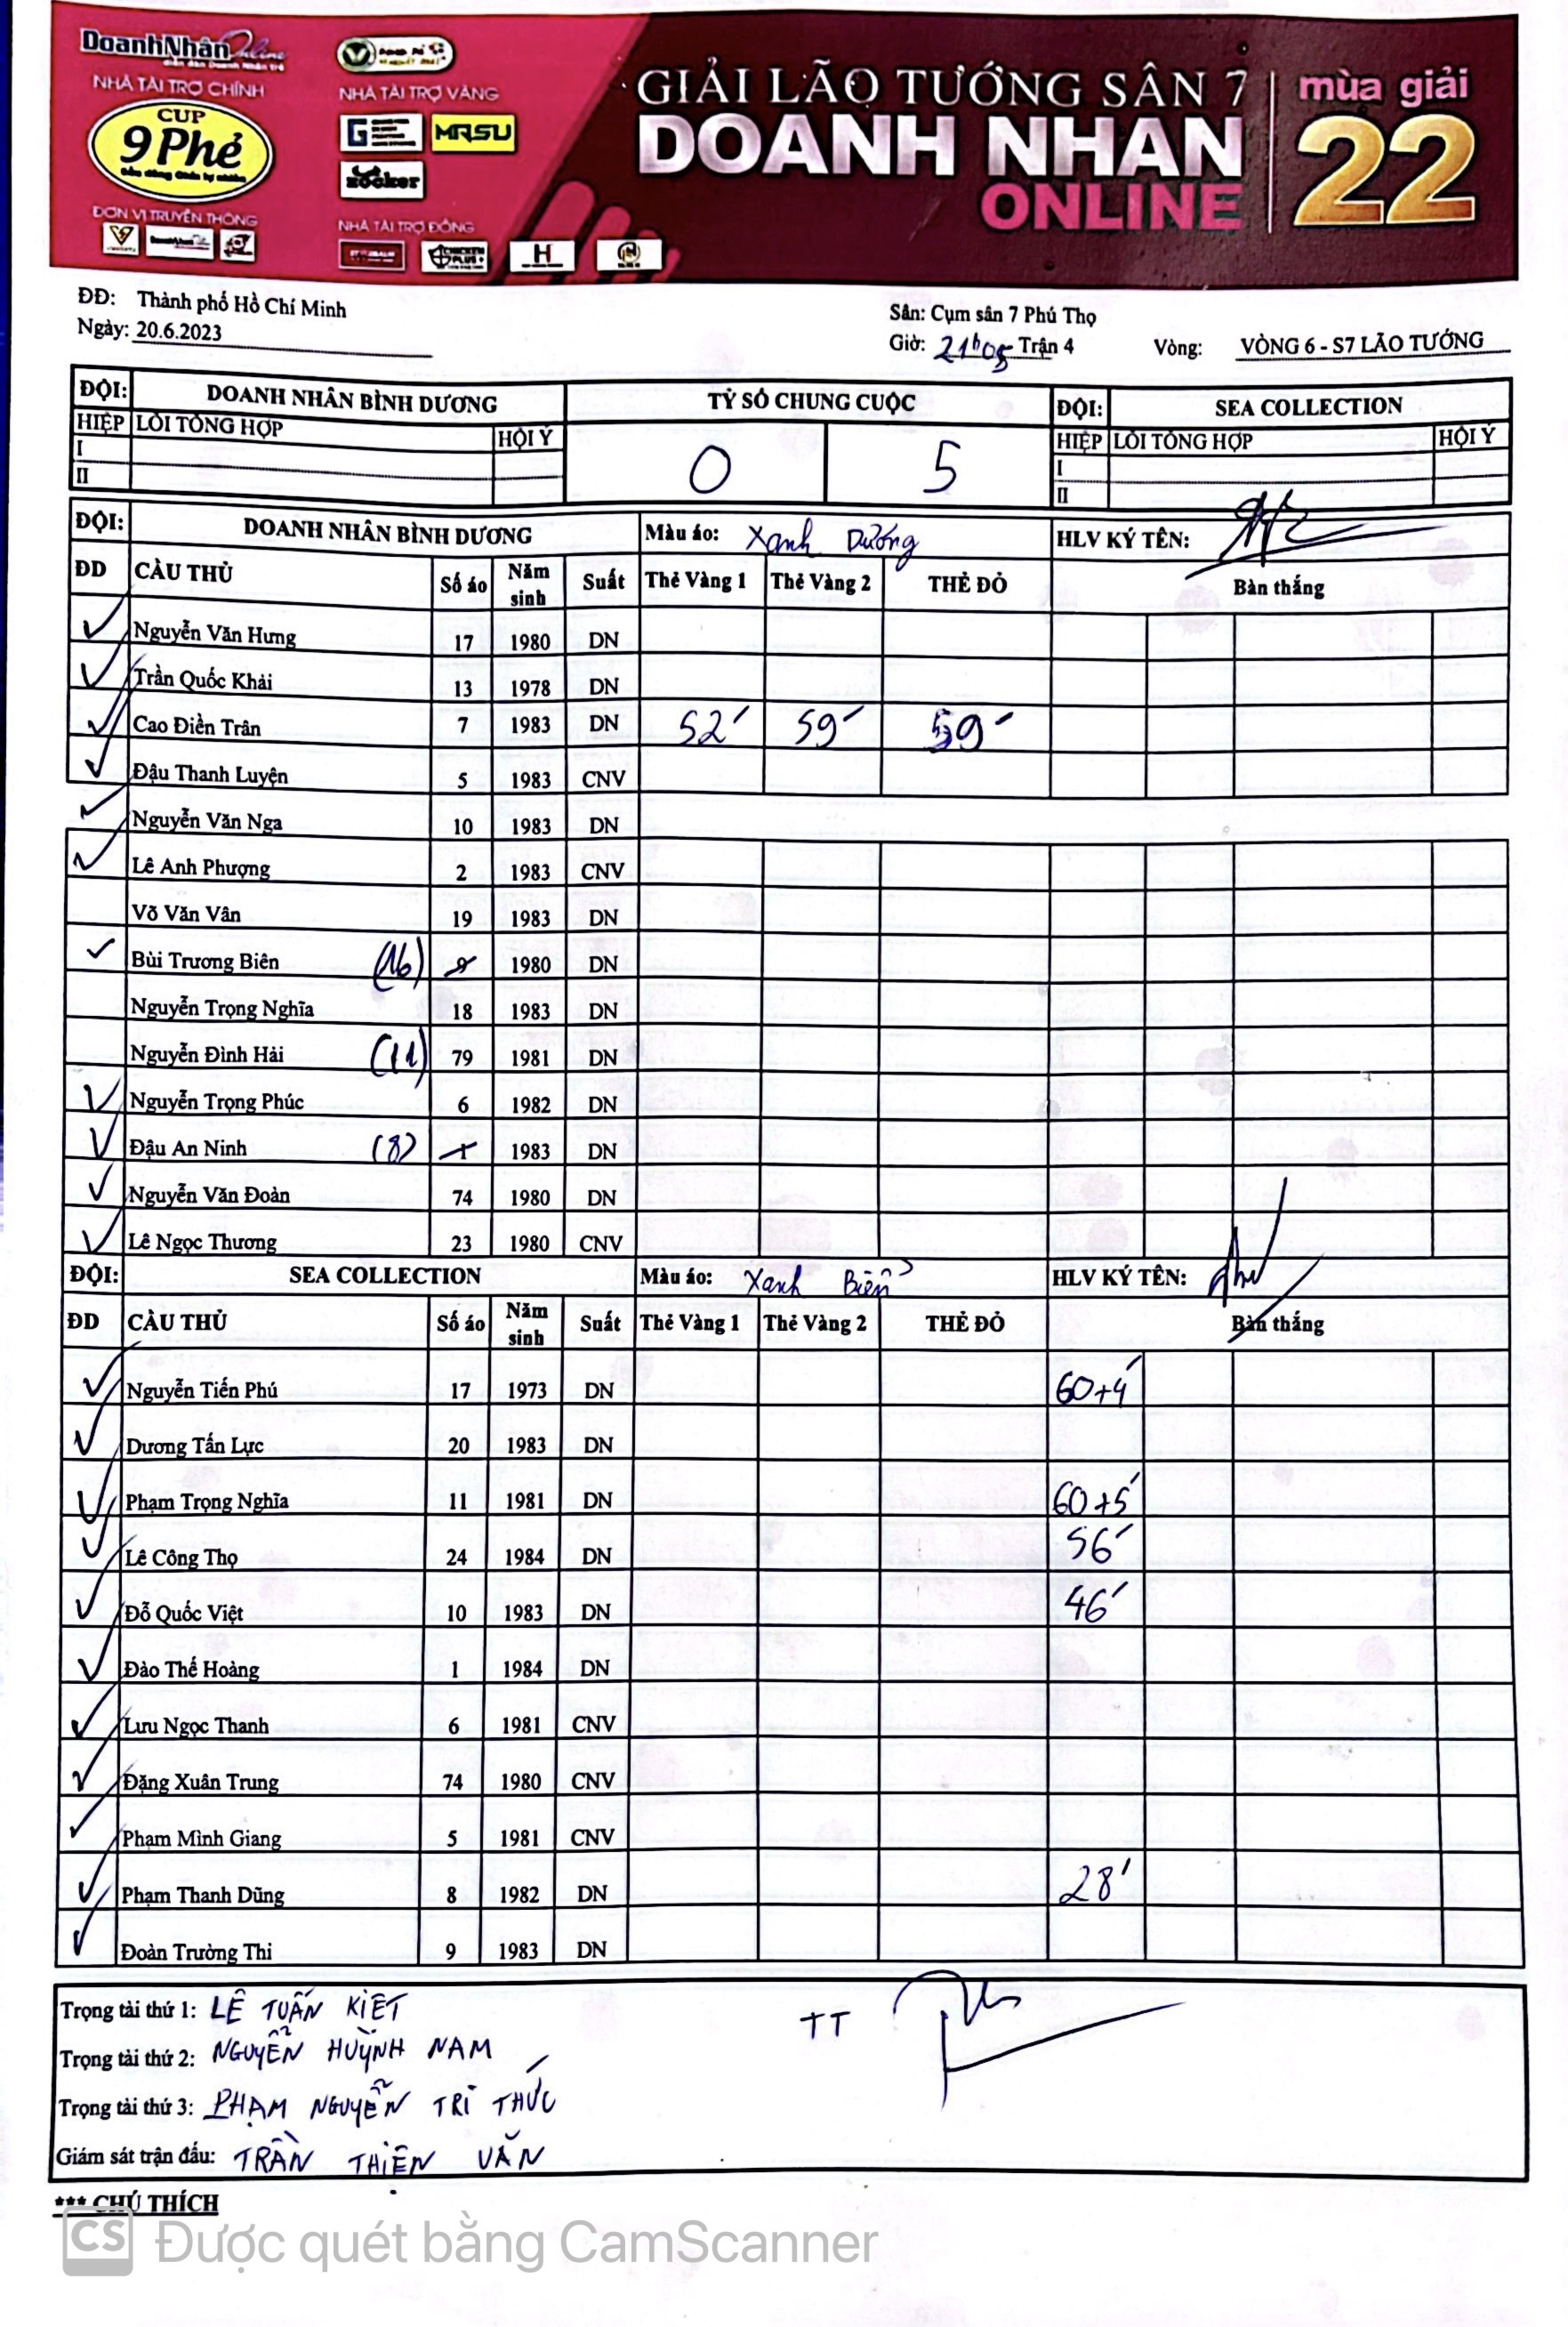 DoanhNhân Online
NHÀ TÀI TRỢ CHÍNH
CUP
9 Phẻ
ĐƠN VỊ TRUYỀN THÔNG
NHÀ TÀI TRỢ VÀNG
MRSU
zocker
NHÀ TÀI TRỢ ĐỒNG
CHICKEN PLUS
H
GIẢI LÃO TƯỚNG SÂN 7
DOANH NHAN
ONLINE
mùa giải
22
ĐĐ: Thành phố Hồ Chí Minh
Ngày: 20.6.2023
Sân: Cụm sân 7 Phú Thọ
Giờ: 21h05 Trận 4 Vòng: VÒNG 6 - S7 LÃO TƯỚNG
ĐỘI: DOANH NHÂN BÌNH DƯƠNG TỶ SỐ CHUNG CUỘC ĐỘI: SEA COLLECTION
HIỆP LỖI TỔNG HỢP HỘI Ý 0 5 HIỆP LỖI TỔNG HỢP HỘI Ý
I I
II II
ĐỘI: DOANH NHÂN BÌNH DƯƠNG Màu áo: Xanh Dương HLV KÝ TÊN:
ĐD CẦU THỦ Số áo Năm sinh Suất Thẻ Vàng 1 Thẻ Vàng 2 THẺ ĐỎ Bàn thắng
Nguyễn Văn Hưng 17 1980 DN
Trần Quốc Khải 13 1978 DN
Cao Điền Trân 7 1983 DN 52' 59' 59'
Đậu Thanh Luyện 5 1983 CNV
Nguyễn Văn Nga 10 1983 DN
Lê Anh Phượng 2 1983 CNV
Võ Văn Vân 19 1983 DN
Bùi Trương Biên (16) 9 1980 DN
Nguyễn Trọng Nghĩa 18 1983 DN
Nguyễn Đình Hải (11) 79 1981 DN
Nguyễn Trọng Phúc 6 1982 DN
Đậu An Ninh (8) 1 1983 DN
Nguyễn Văn Đoàn 74 1980 DN
Lê Ngọc Thương 23 1980 CNV
ĐỘI: SEA COLLECTION Màu áo: Xanh Biển HLV KÝ TÊN:
ĐD CẦU THỦ Số áo Năm sinh Suất Thẻ Vàng 1 Thẻ Vàng 2 THẺ ĐỎ Bàn thắng
Nguyễn Tiến Phú 17 1973 DN 60+4'
Dương Tấn Lực 20 1983 DN
Phạm Trọng Nghĩa 11 1981 DN 60+5'
Lê Công Thọ 24 1984 DN 56'
Đỗ Quốc Việt 10 1983 DN 46'
Đào Thế Hoàng 1 1984 DN
Lưu Ngọc Thanh 6 1981 CNV
Đặng Xuân Trung 74 1980 CNV
Phạm Minh Giang 5 1981 CNV
Phạm Thanh Dũng 8 1982 DN 28'
Đoàn Trường Thi 9 1983 DN
Trọng tài thứ 1: LÊ TUẤN KIỆT
TT
Trọng tài thứ 2: NGUYỄN HUỲNH NAM
Trọng tài thứ 3: PHẠM NGUYỄN TRÍ THỨC
Giám sát trận đấu: TRẦN THIỆN VĂN
*** CHÚ THÍCH
CS Được quét bằng CamScanner